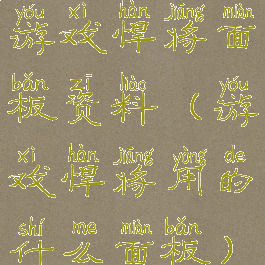 yóu xì hàn jiàng miàn
游戏悍将面
bǎn zī liào yóu
板资料（游
xì hàn jiàng yòng de
戏悍将用的
shí me miàn bǎn
什么面板）